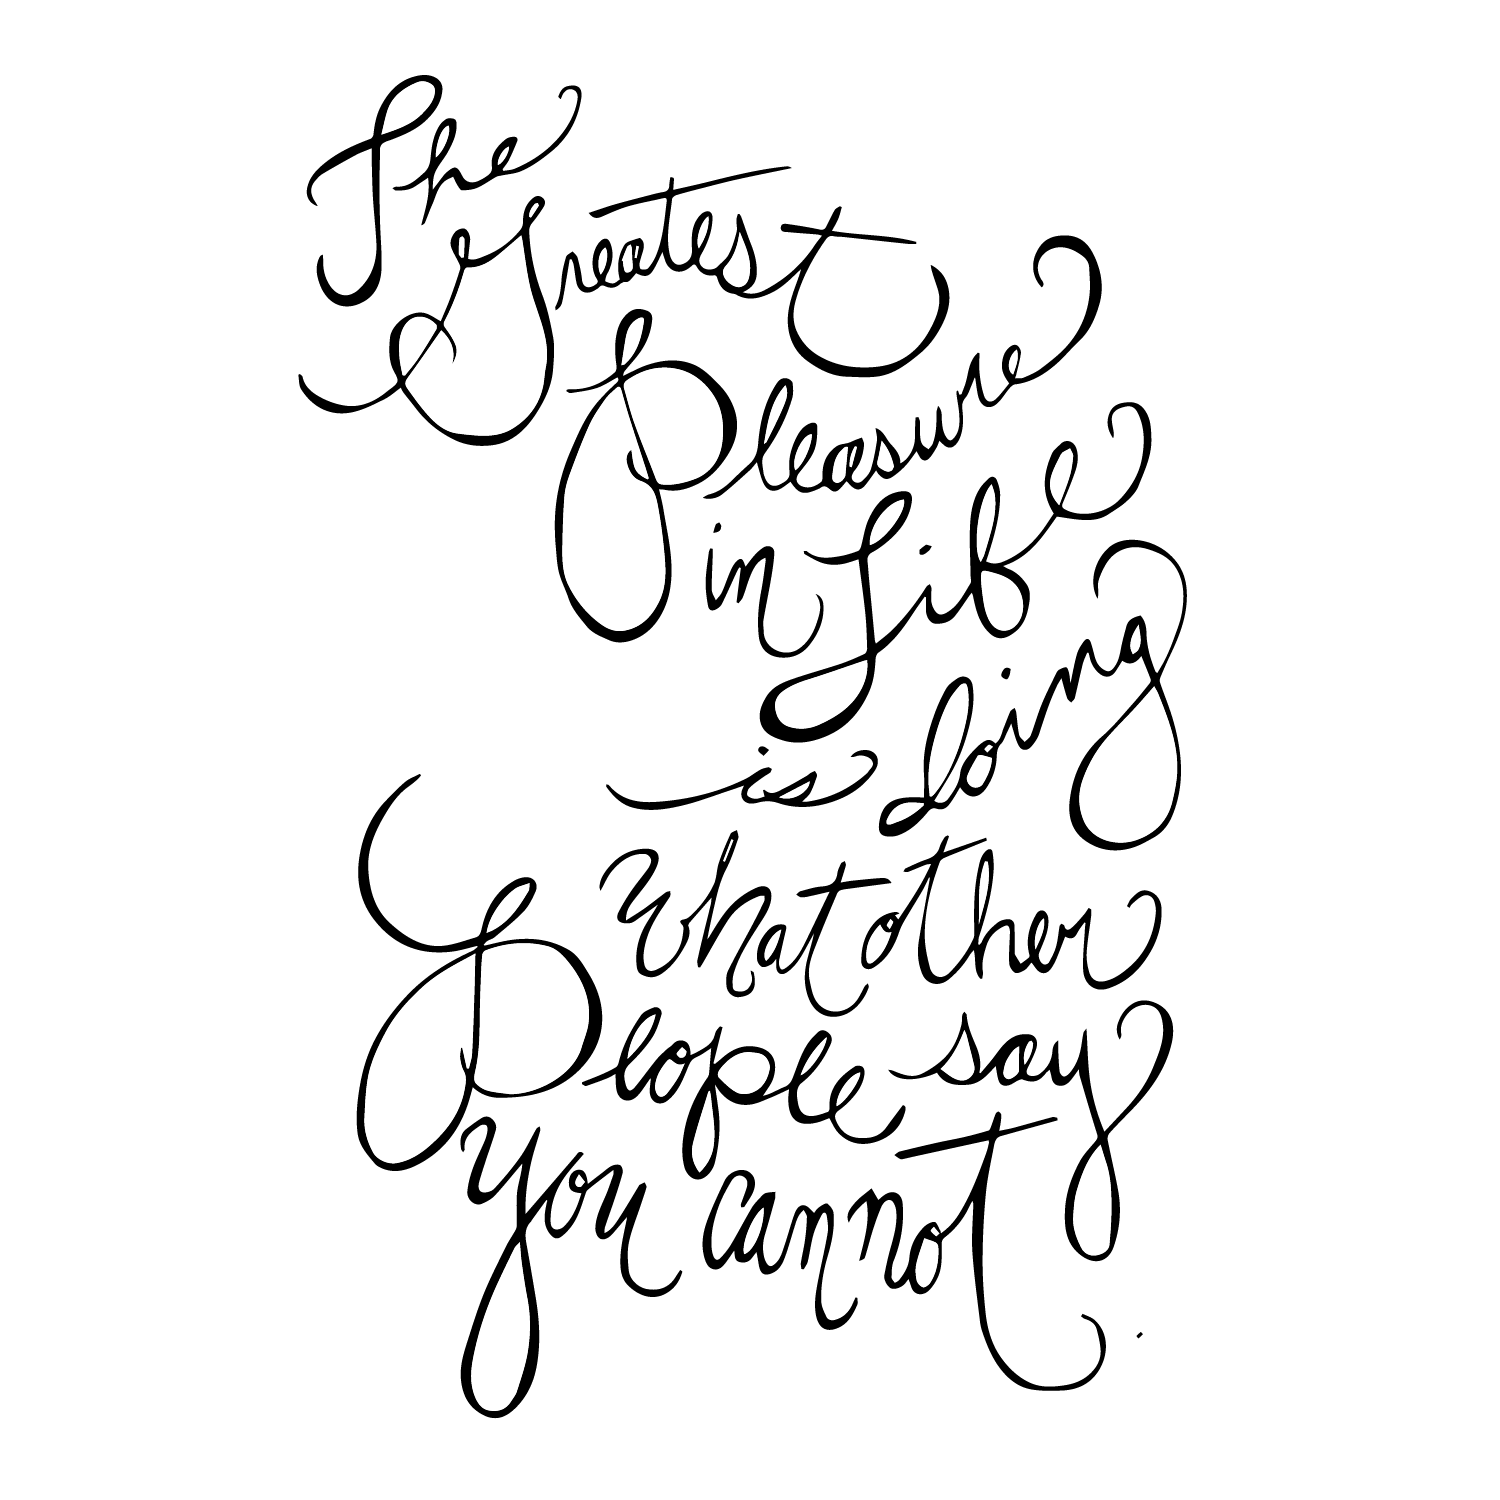 The
Greatest
Pleasure
in Life
is doing
What other
People say
you cannot.